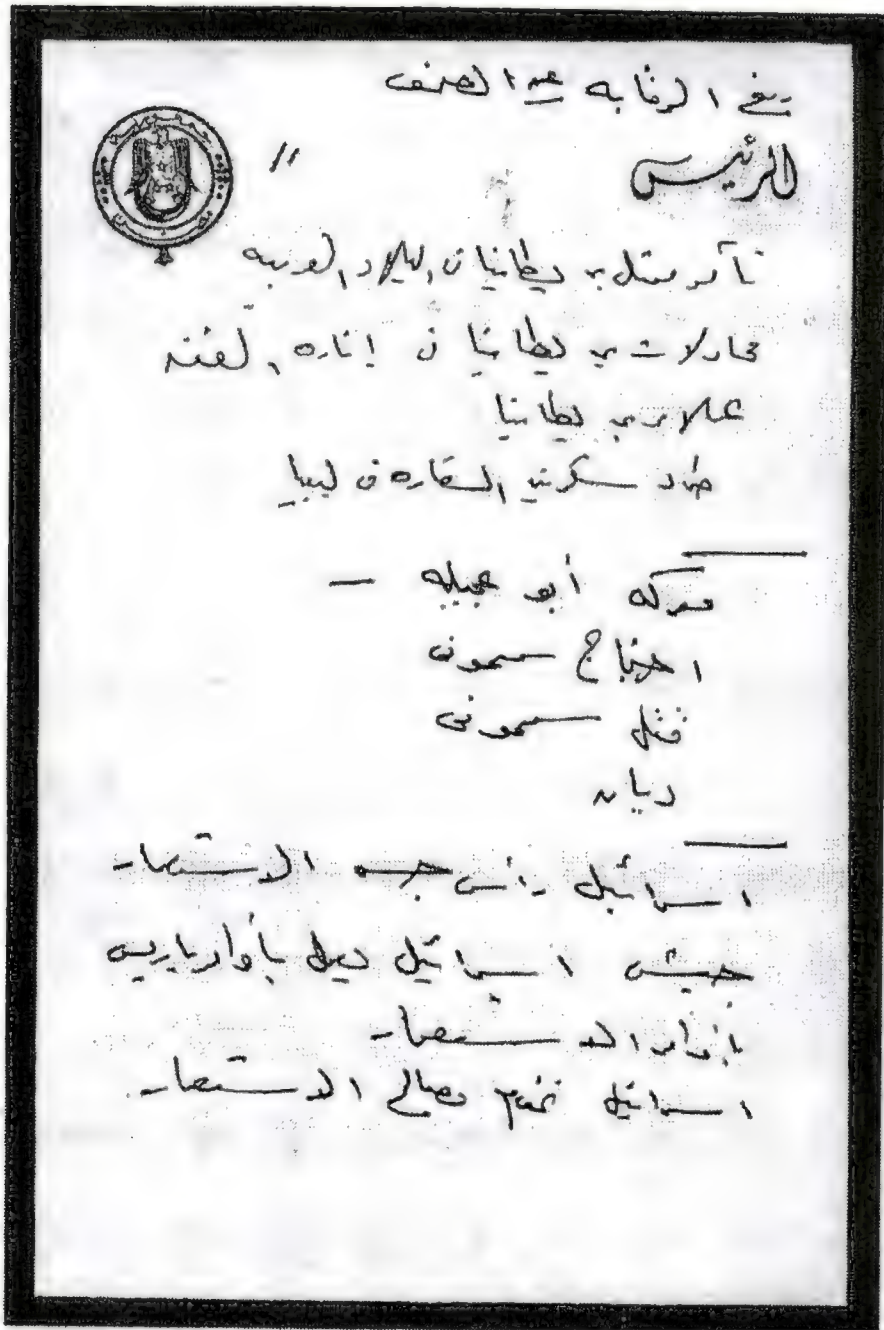 رفع الرقابه عن الصحف
الرئيس "
تآمر ... بريطانيا في البلاد العربيه
محاولات ... بريطانيا في إثاره الفتنه
عملاء ... بريطانيا
طرد سكرتير السفاره في ليبيا
معركه أبو عجيله —
احتجاج سيموني
فشل سيموني
ديان
اسرائيل رأس جسر الاستعمار
جيش اسرائيل يعمل بأوامر باريس
بأوامر الاستعمار
اسرائيل تخدم مصالح الاستعمار